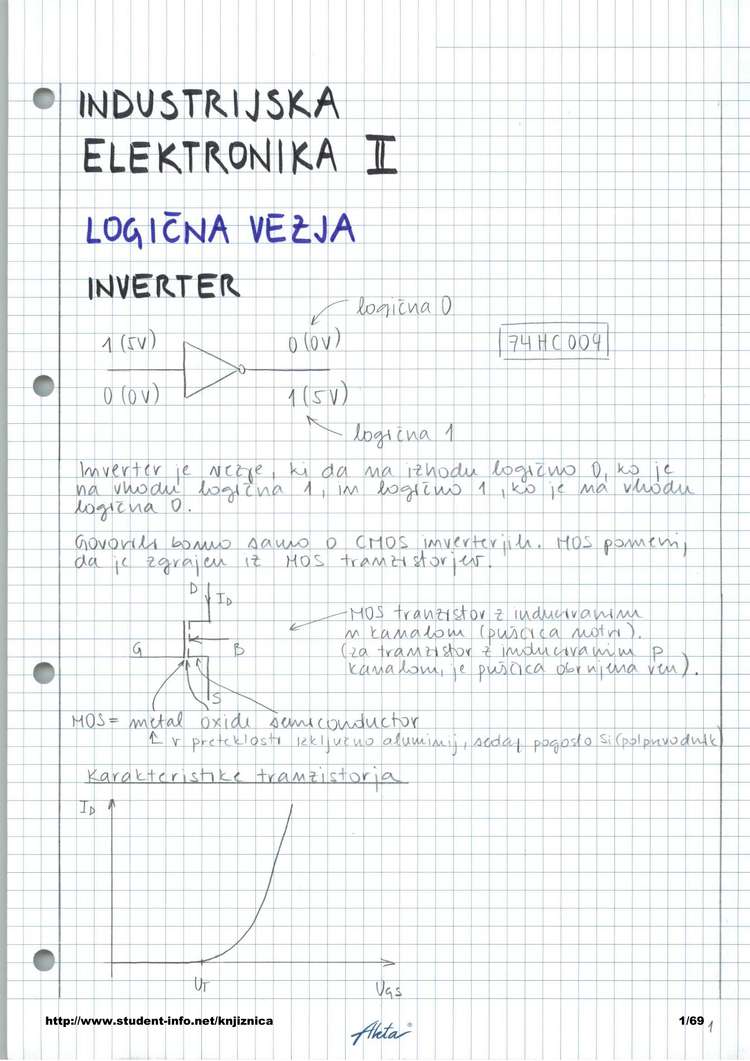 INDUSTRIJSKA
ELEKTRONIKA II
LOGIČNA VEZJA
INVERTER
logična 0
1 (5V)
0 (0V)
74HC004
0 (0V)
1 (5V)
logična 1
Inverter je vezje, ki da na izhodu logično 0, ko je
na vhodu logična 1, in logično 1, ko je na vhodu
logična 0.
Govorili bomo samo o CMOS inverterjih. MOS pomeni,
da je zgrajen iz MOS tranzistorjev.
D
ID
G
B
S
MOS tranzistor z induciranim
n kanalom (puščica notri).
(za tranzistor z induciranim p
kanalom, je puščica obrnjena ven).
MOS = metal oxide semiconductor
v preteklosti izključno aluminij, sedaj pogosto Si (polprevodnik)
Karakteristike tranzistorja
ID
UT
UGS
http://www.student-info.net/knjiznica
Aketa
1/69
1